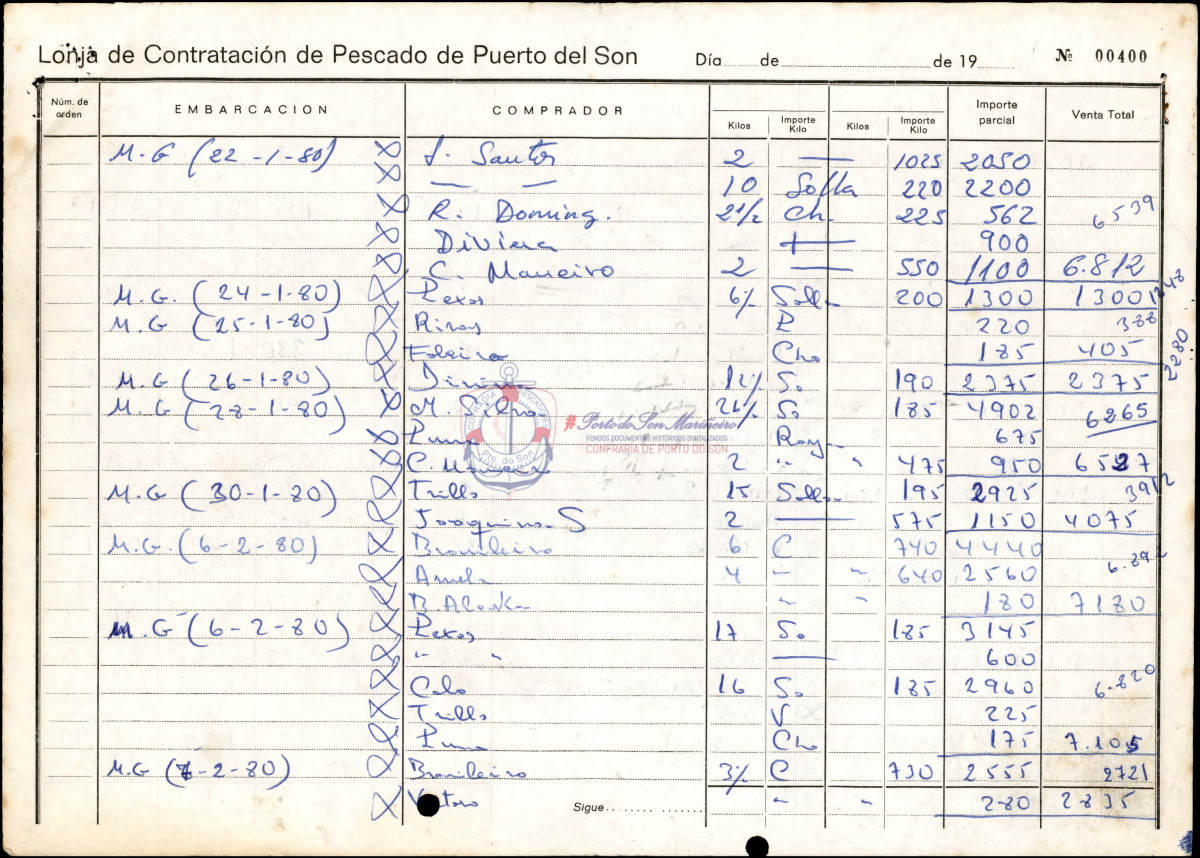 Lonja de Contratación de Pescado de Puerto del Son Día de de 19 Nº 00400
Núm. de orden EMBARCACION COMPRADOR Kilos Importe Kilo Kilos Importe Kilo Importe parcial Venta Total
M.G (22-1-80) J. Santos 2 — 1025 2050
— — 10 Solla 220 2200
R. Doming. 2 1/2 Ch. 225 562 6539
Diviera 900
C. Maneiro 2 — 550 1100 6.812
M.G. (24-1-80) Pexos 6 1/2 Solla 200 1300 1300 1248
M.G (25-1-80) Riros R 220 388
Edeira Cho 185 405
M.G (26-1-80) 12 1/2 So 190 2375 2375 2280
M.G (28-1-80) M. Silva 26 1/2 So 185 4902 6265
Puma Raya 675
C. Maneiro 2 " " 475 950 6527
M.G (30-1-80) Trillo 15 Solla 195 2925 3912
Joaquina S 2 — 575 1150 4075
M.G. (6-2-80) Brasileiro 6 C 740 4440
4 " " 640 2560 6.892
" " 180 7180
M.G (6-2-80) Pexos 17 So 185 3145
" " — 600
Calo 16 So 185 2960 6.820
Trillo V 225
Puma Cho 175 7.105
M.G (7-2-80) Brasileiro 3 1/2 C 730 2555 2721
Sigue " " 280 2835
#Porto do Son Mariñeiro
FONDOS DOCUMENTAIS HISTÓRICOS DIXITALIZADOS
CONFRARIA DE PORTO DO SON